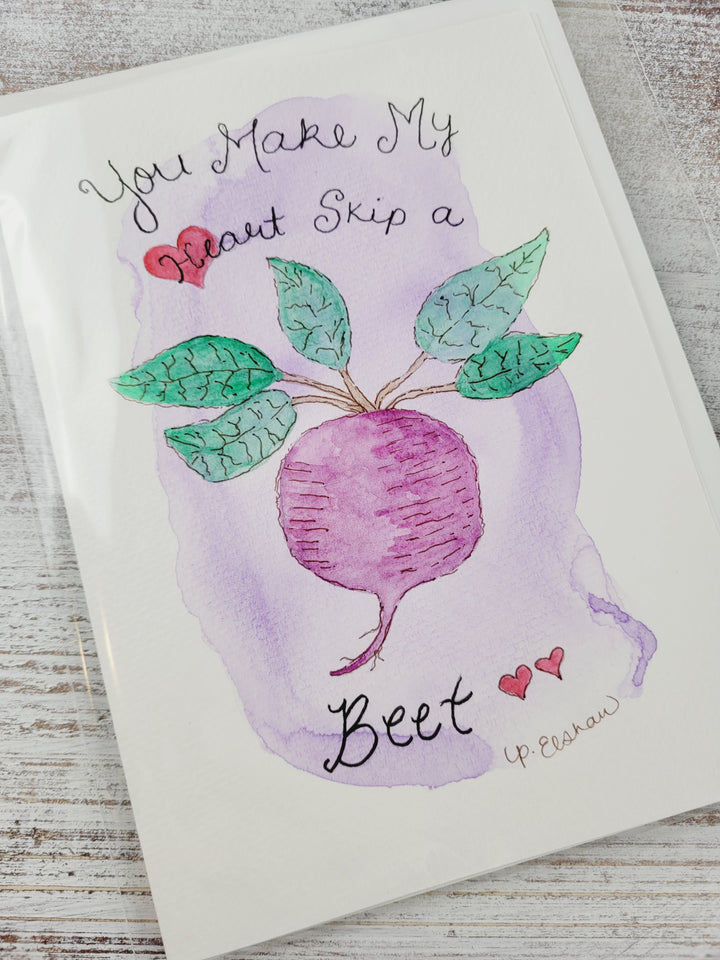 You Make My
Heart Skip a
Beet